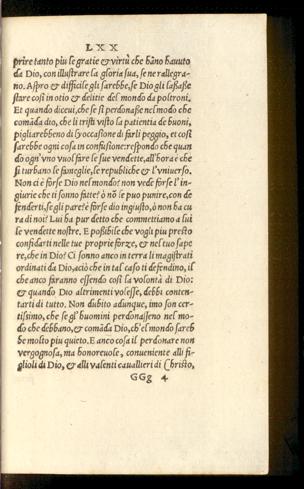 LXX
prire tanto piu se gratie & virtù che hāno hauuto
da Dio, con illustrare la gloria sua, se ne rallegra-
no. Aspro & difficile gli sarebbe, se Dio gli lassasse
stare così in otio & delitie del mondo da poltroni.
Et quando diceui, che se si perdonasse nel modo che
comāda dio, che li tristi visto la patientia de buoni,
pigliarebbeno di lì occasione di farli peggio, et così
sarebbe ogni cosa in confusione: respondo che quan
do ogn'vno vuol fare le sue vendette, all'hora è che
si turbano le fameglie, le republiche & l'vniuerso.
Non ci è forse Dio nel mondo? non vede forse l'in
giurie che ti sonno fatte? ò nō se puo punire, con de
fenderti, se gli pare? è forse dio ingiusto, ò non ha cu
ra di noi? Lui ha pur detto che committiamo a lui
le vendette nostre. E possibile che vogli piu presto
confidarti nelle tue proprie forze, & nel tuo sape
re, che in Dio? Ci sonno anco in terra li magistrati
ordinati da Dio, aciò che in tal caso ti defendino, il
che anco faranno essendo così la volontà di Dio:
& quando Dio altrimenti volesse, debbi conten-
tarti di tutto. Non dubito adunque, imo son cer-
tissimo, che se gl'huomini perdonasseno nel mo-
do che debbano, & comāda Dio, ch'el mondo sareb
be molto piu quieto. E anco cosa il perdonare non
vergognosa, ma honoreuole, conueniente alli fi-
glioli di Dio, & alli valenti cauallieri di Christo,
GGg 4